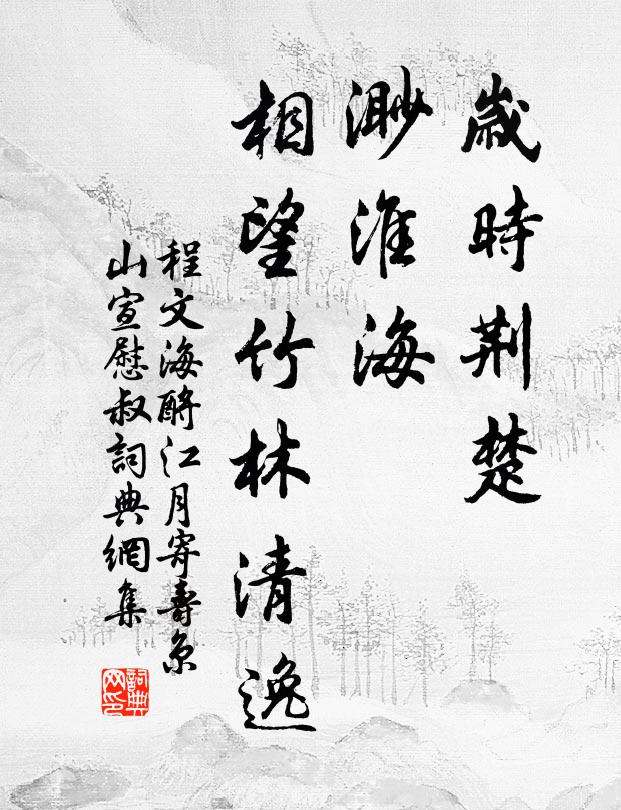 歲時荆楚
渺淮海
相望竹林清逸
程文海酹江月寄壽京
山宣慰叔詞典網集
詞典
网印